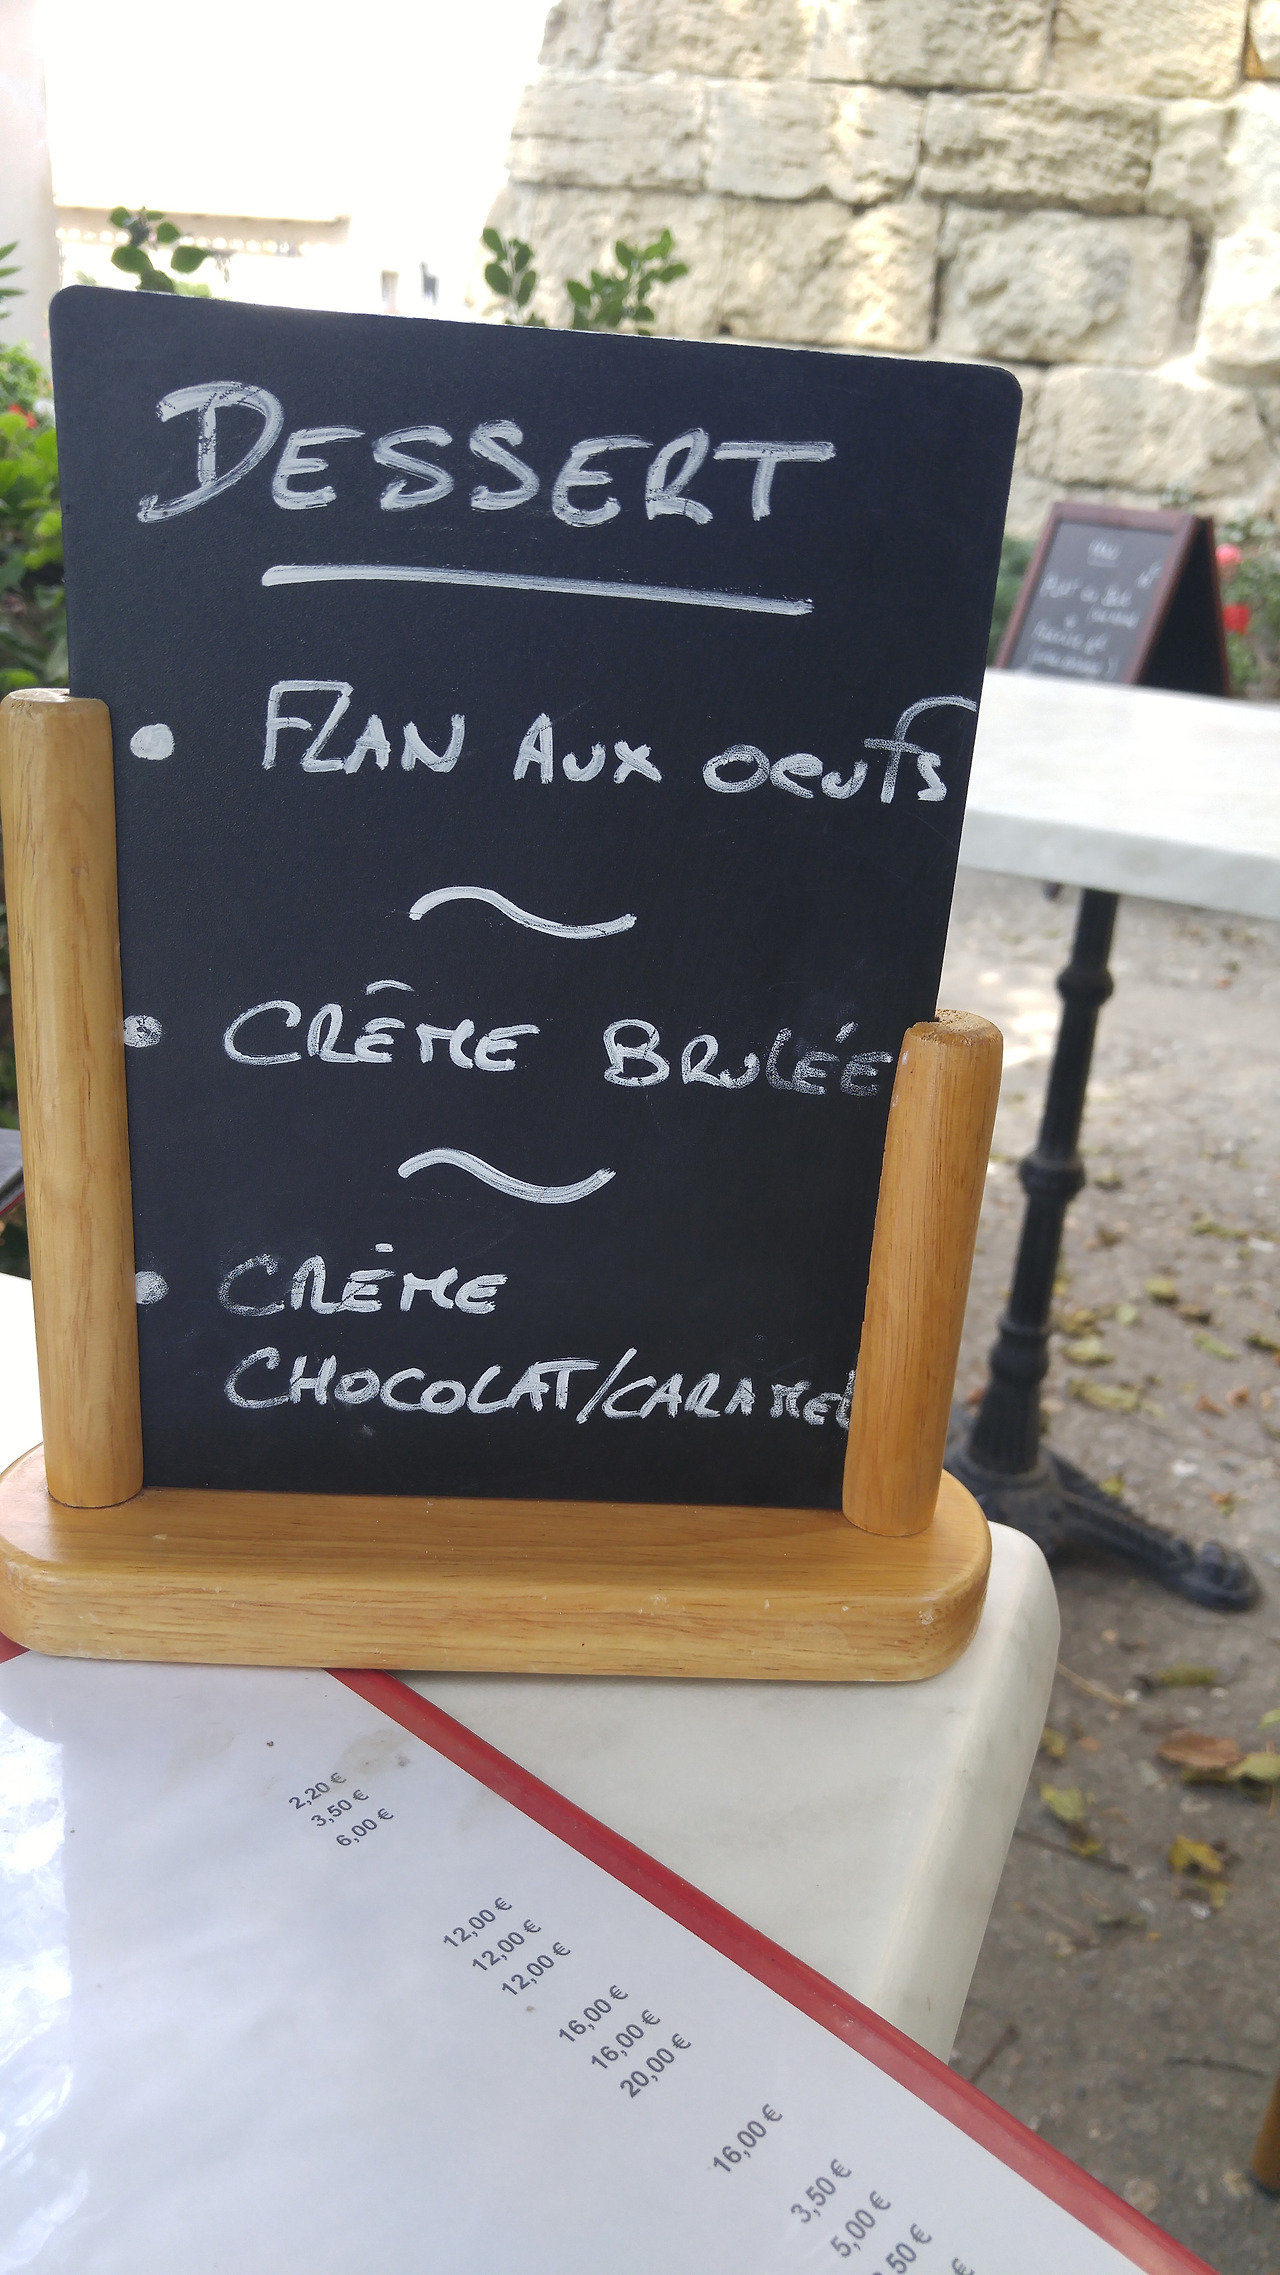 DESSERT
• FLAN AUX oeufs
~
• CRÊME BRULÉE
~
• CRÊME
CHOCOLAT/CARAMEL
2,20 €
3,50 €
6,00 €
12,00 €
12,00 €
12,00 €
16,00 €
16,00 €
20,00 €
16,00 €
3,50 €
5,00 €
,50 €
€